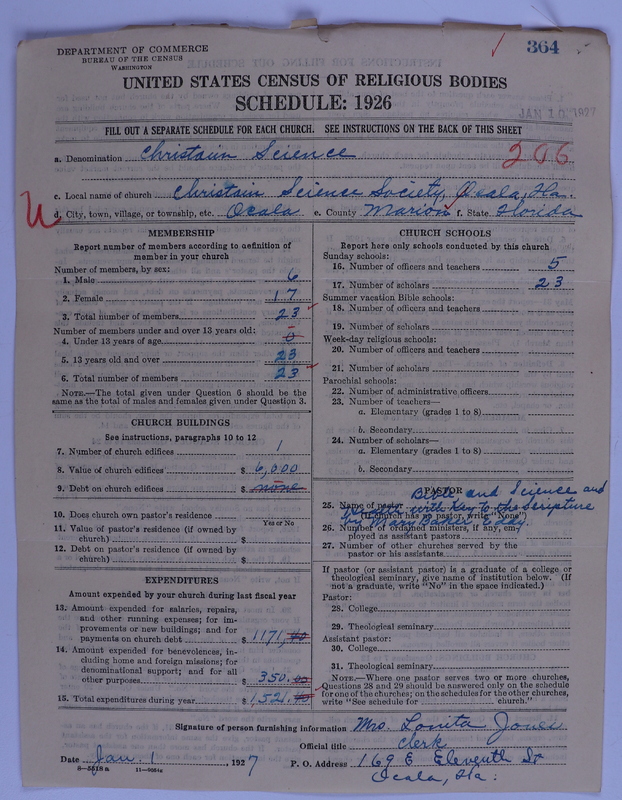 364
DEPARTMENT OF COMMERCE
BUREAU OF THE CENSUS
WASHINGTON
UNITED STATES CENSUS OF RELIGIOUS BODIES
SCHEDULE: 1926
JAN 10 1927
FILL OUT A SEPARATE SCHEDULE FOR EACH CHURCH. SEE INSTRUCTIONS ON THE BACK OF THIS SHEET
a. Denomination Christain Science
206
c. Local name of church Christain Science Society, Ocala, Fla.
d. City, town, village, or township, etc. Ocala e. County Marion f. State Florida
MEMBERSHIP
Report number of members according to definition of
member in your church
Number of members, by sex:
1. Male 6
2. Female 17
3. Total number of members 23
Number of members under and over 13 years old:
4. Under 13 years of age 0
5. 13 years old and over 23
6. Total number of members 23
NOTE.—The total given under Question 6 should be the
same as the total of males and females given under Question 3.
CHURCH BUILDINGS
See instructions, paragraphs 10 to 12
7. Number of church edifices 1
8. Value of church edifices $ 6,000
9. Debt on church edifices $ none
10. Does church own pastor's residence
Yes or No
11. Value of pastor's residence (if owned by
church) $
12. Debt on pastor's residence (if owned by
church) $
EXPENDITURES
Amount expended by your church during last fiscal year
13. Amount expended for salaries, repairs,
and other running expenses; for im-
provements or new buildings; and for
payments on church debt $ 1171.00
14. Amount expended for benevolences, in-
cluding home and foreign missions; for
denominational support; and for all
other purposes $ 350.00
15. Total expenditures during year $ 1,521.00
CHURCH SCHOOLS
Report here only schools conducted by this church
Sunday schools:
16. Number of officers and teachers 5
17. Number of scholars 23
Summer vacation Bible schools:
18. Number of officers and teachers
19. Number of scholars
Week-day religious schools:
20. Number of officers and teachers
21. Number of scholars
Parochial schools:
22. Number of administrative officers
23. Number of teachers—
a. Elementary (grades 1 to 8)
b. Secondary
24. Number of scholars—
a. Elementary (grades 1 to 8)
b. Secondary
PASTOR
Bible and Science and
25. Name of pastor
Health with Key to the Scripture
(If church has no pastor, write "None")
by Mary Baker Eddy.
26. Number of ordained ministers, if any, em-
ployed as assistant pastors
27. Number of other churches served by the
pastor or his assistants
If pastor (or assistant pastor) is a graduate of a college or
theological seminary, give name of institution below. (If
not a graduate, write "No" in the space indicated.)
Pastor:
28. College
29. Theological seminary
Assistant pastor:
30. College
31. Theological seminary
NOTE.—Where one pastor serves two or more churches,
Questions 28 and 29 should be answered only on the schedule
for one of the churches; on the schedules for the other churches,
write "See schedule for church."
Signature of person furnishing information Mrs. Lonita Jones
Official title Clerk
Date Jan. 1, 1927 P. O. Address 169 E Eleventh St
8—5518 a 11—9064a Ocala, Fla.